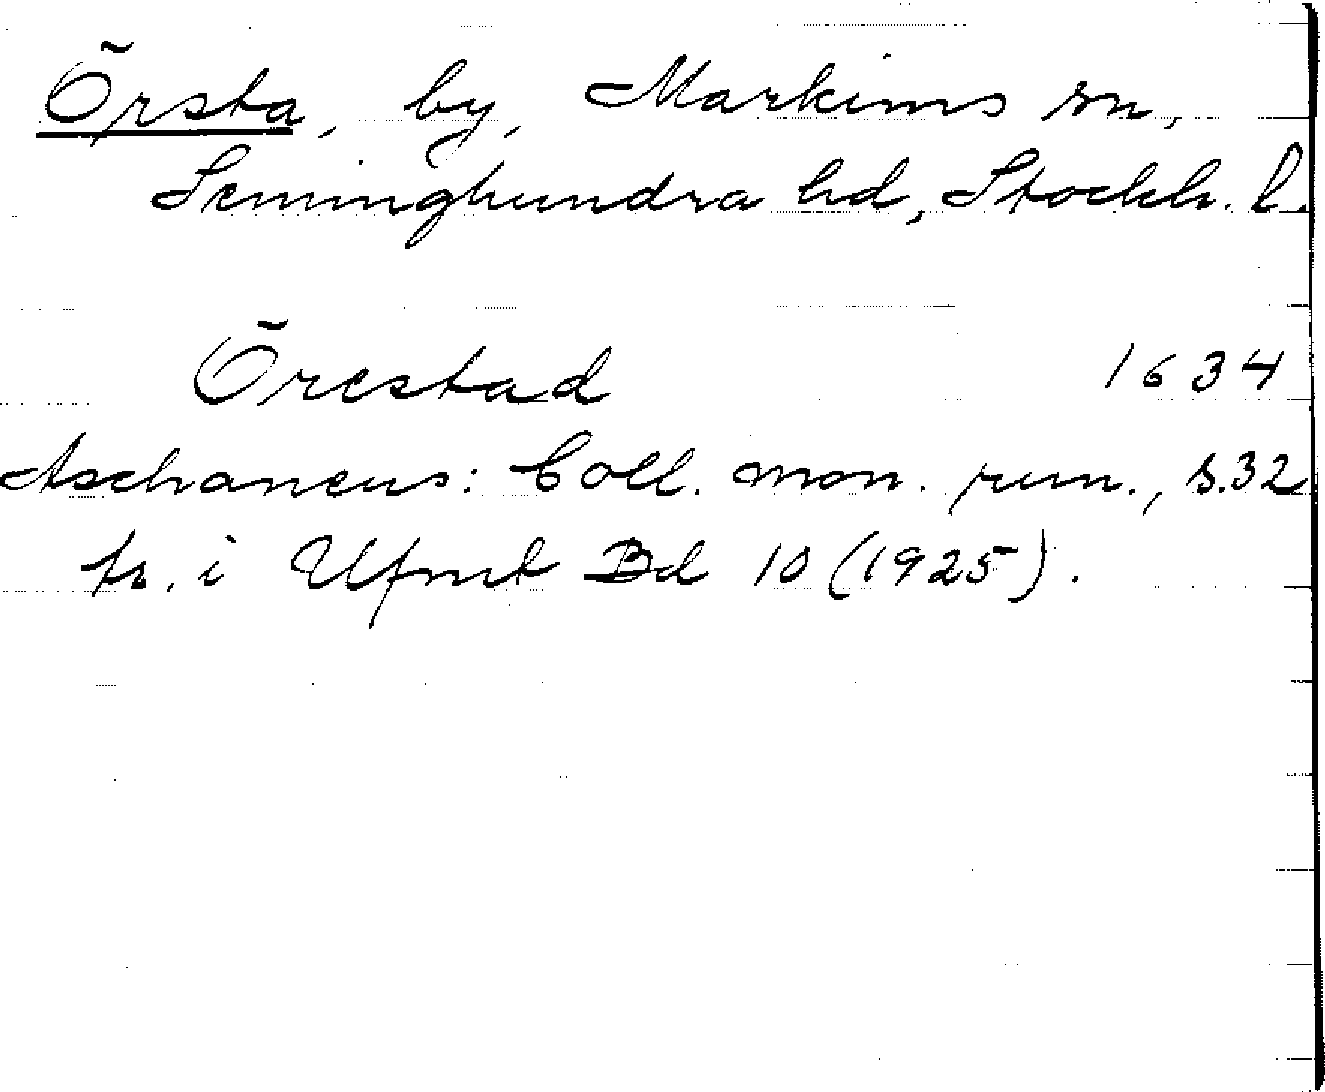 Örsta, by, Markims sn,
Seminghundra hd, Stockh. l.
Örestad 1634
Aschaneus: Coll. mon. run., s.32
tr. i Ufmt Bd 10 (1925).